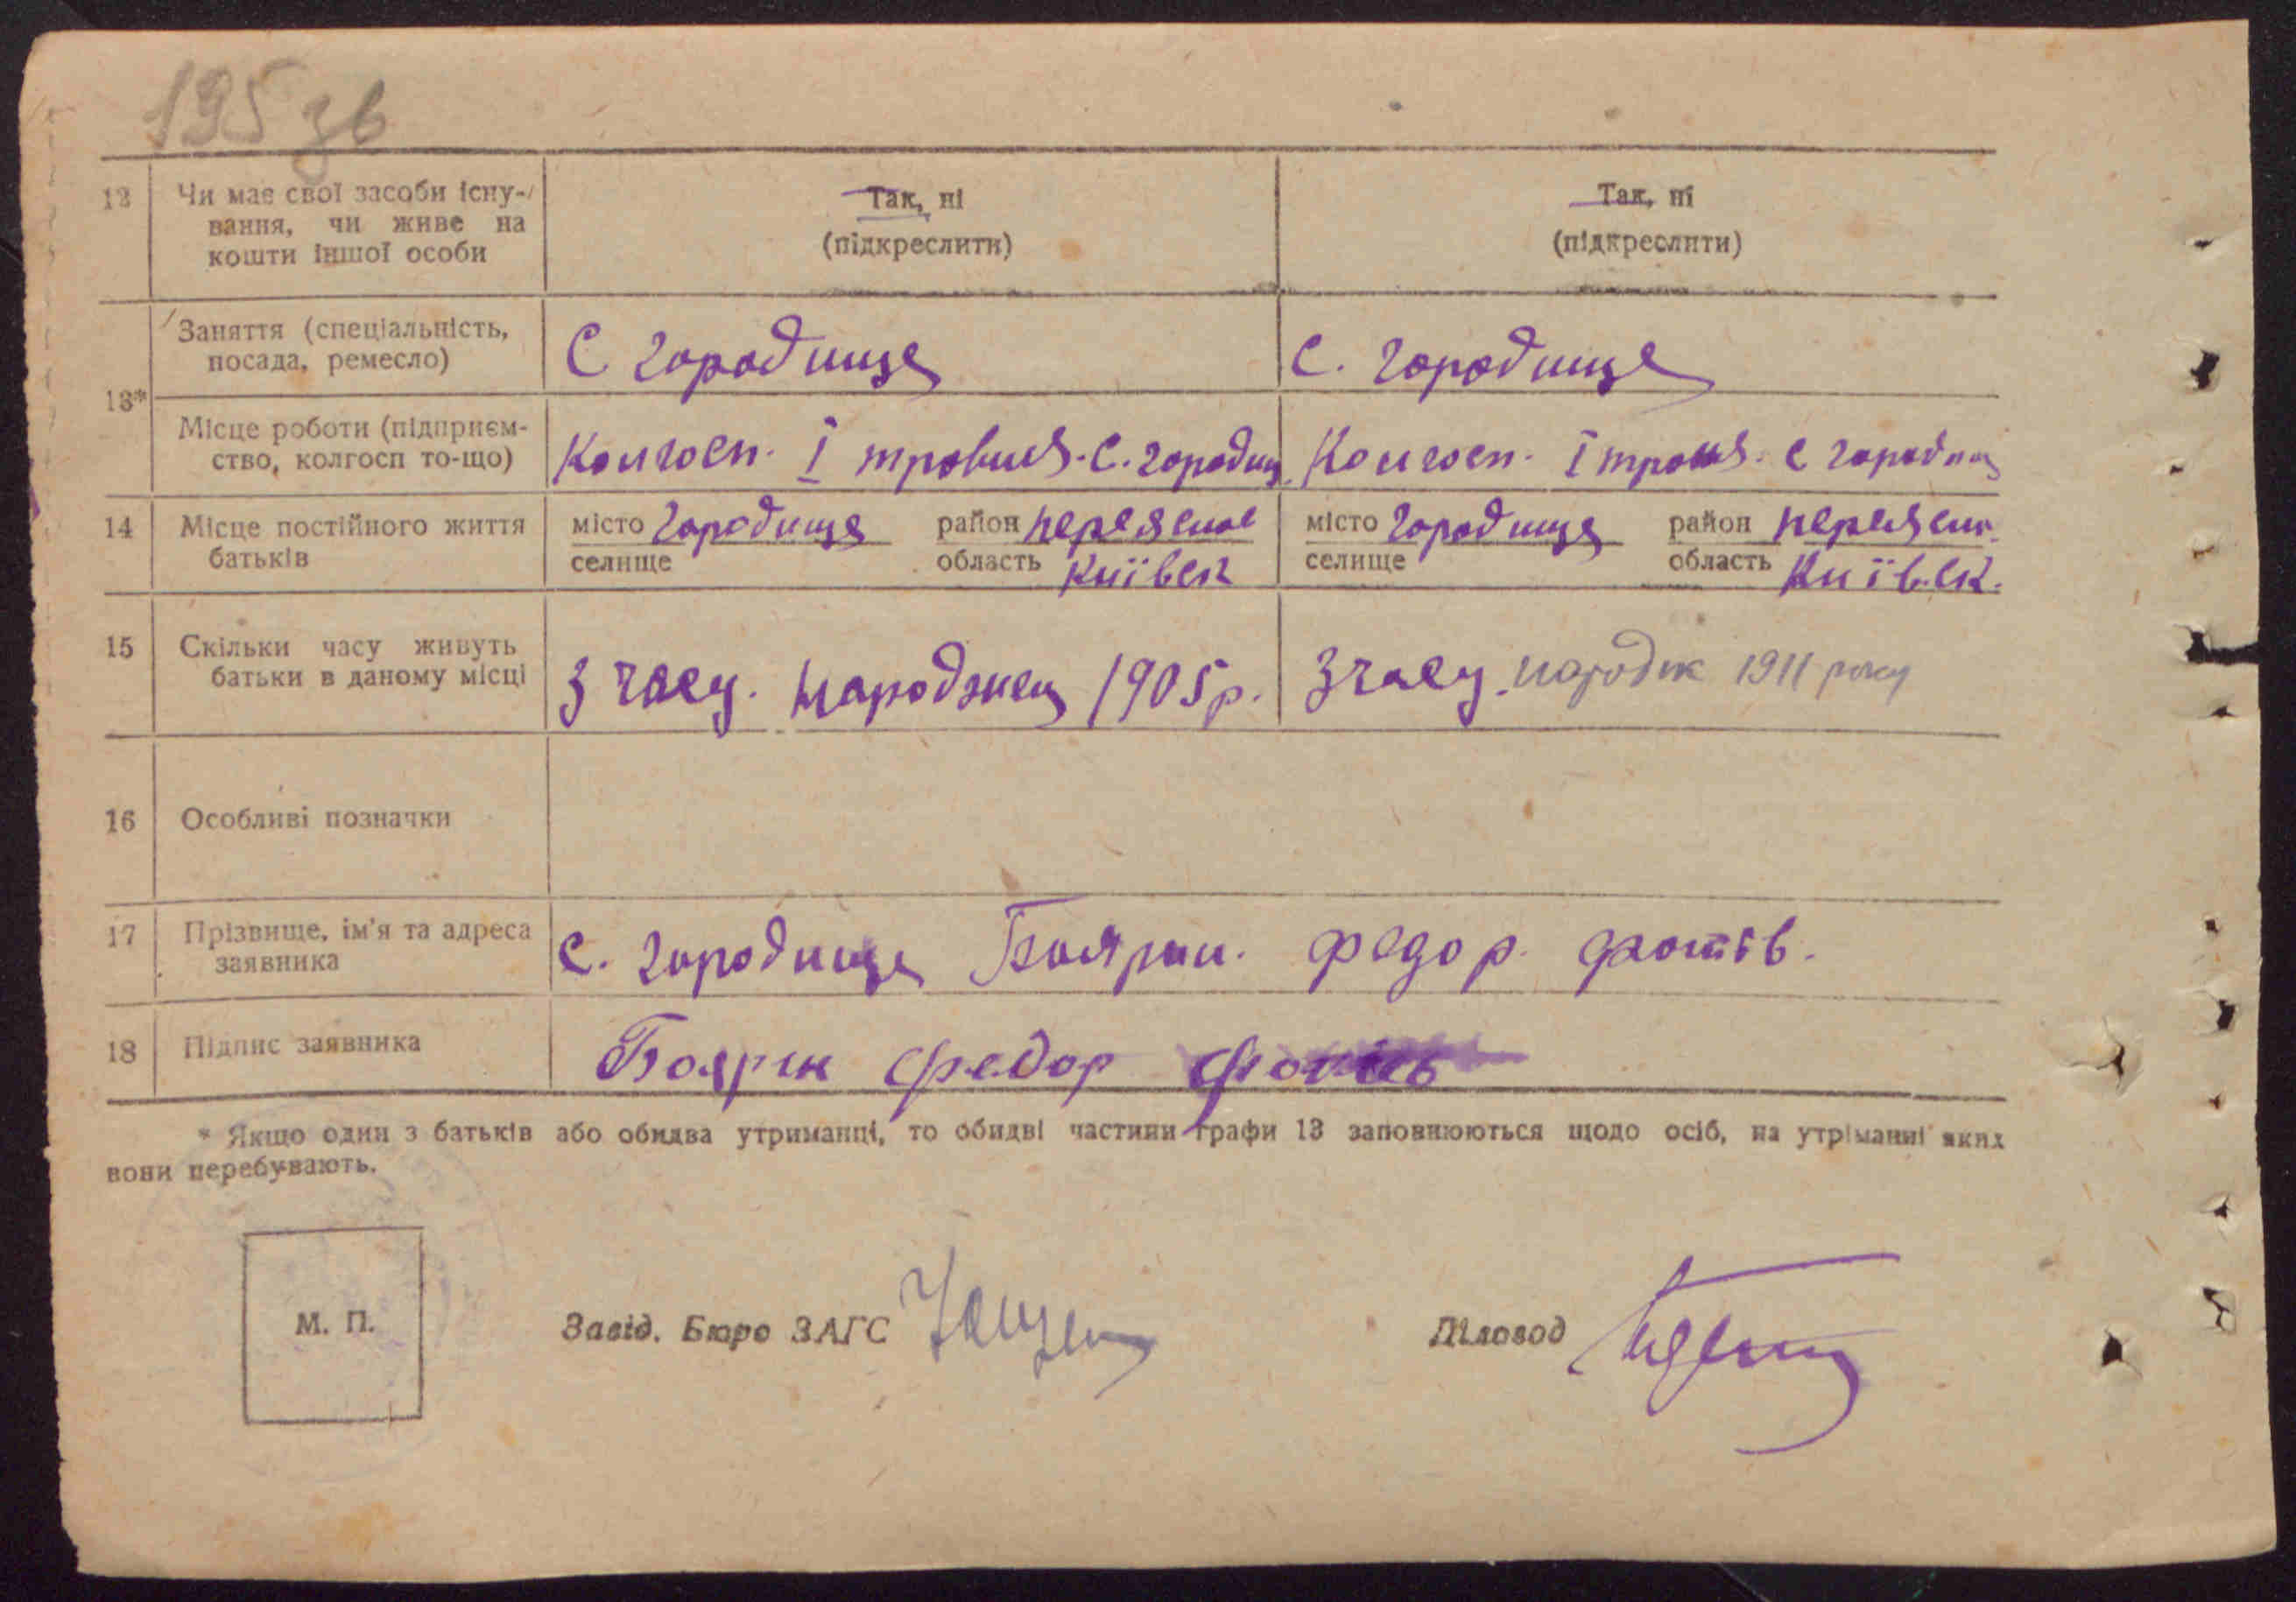 195 зв
12 Чи має свої засоби існу- Так, ні Так, ні
вання, чи живе на (підкреслити) (підкреслити)
кошти іншої особи
13* Заняття (спеціальність, С городище С. городище
посада, ремесло)
Місце роботи (підприєм- Колгосп. І травня. С. городищ Колгосп. І травня. С городищ
ство, колгосп то-що)
14 Місце постійного життя місто городище район переяслав місто городище район переяслав.
батьків селище область Київськ селище область Київ.ск.
15 Скільки часу живуть З часу. народжен 1905 р. З часу. народж 1911 року
батьки в даному місці
16 Особливі позначки
17 Прізвище, ім'я та адреса С. городище Боярин. Федор. Фотів.
заявника
18 Підпис заявника Боярин Федор
* Якщо один з батьків або обидва утриманці, то обидві частини графи 13 заповнюються щодо осіб, на утріманні яких
вони перебувають.
М. П. Завід. Бюро ЗАГС Діловод